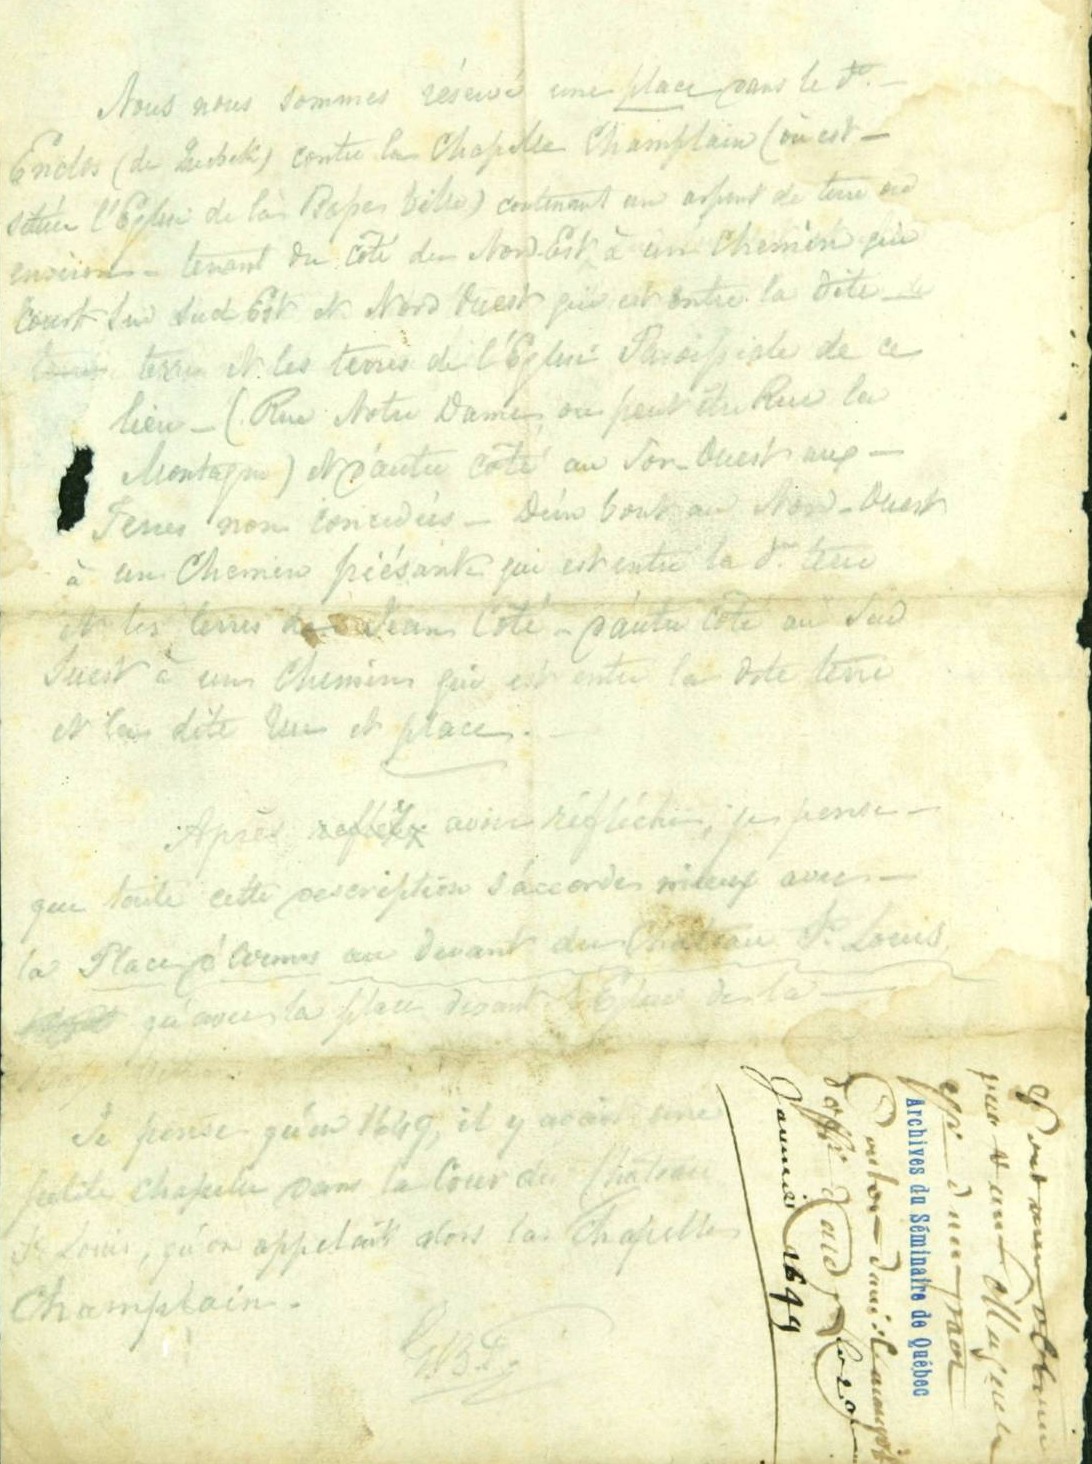 Nous nous sommes réservé une place dans le dt. —
Enclos (de Quebek) contre la Chapelle Champlain (où est —
située l'Eglise de la Basse Ville) contenant un arpent de terre ou
environ — tenant du côté du Nord Est à un chemin qui
court Sud Est et Nord Ouest qui est entre la dite
terre et les terres de l'Eglise Paroissiale de ce
lieu — (Rue Notre Dame, ou peut être Rue la
Montagne) et d'autre côté au Sor-Ouest aux —
Terres non concédées — D'un bout au Nord-Ouest
à un Chemin présant qui est entre la de. terre
et les terres de Jean Côté — d'autre côté au Sud
Ouest à un Chemin qui est entre la dite terre
et la dite Rue et place.
Après avoir réfléchi, je pense —
que toute cette description s'accorde mieux avec —
la Place d'Armes au devant du Château St. Louis
qu'avec la place devant l'Eglise de la —
Je pense qu'en 1649, il y avait une
petite chapelle dans la Cour du Château
St. Louis, qu'on appelait alors la Chapelle
Champlain.
Archives du Séminaire de Québec
Janvier 1649